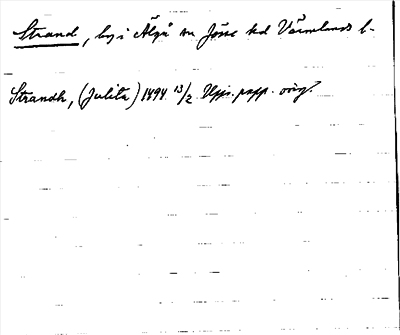 Strand, by i Älgå sn Jösse hd Värmlands l.
Strandh, (Julita) 1494 13/2 Upps. papp. orig.